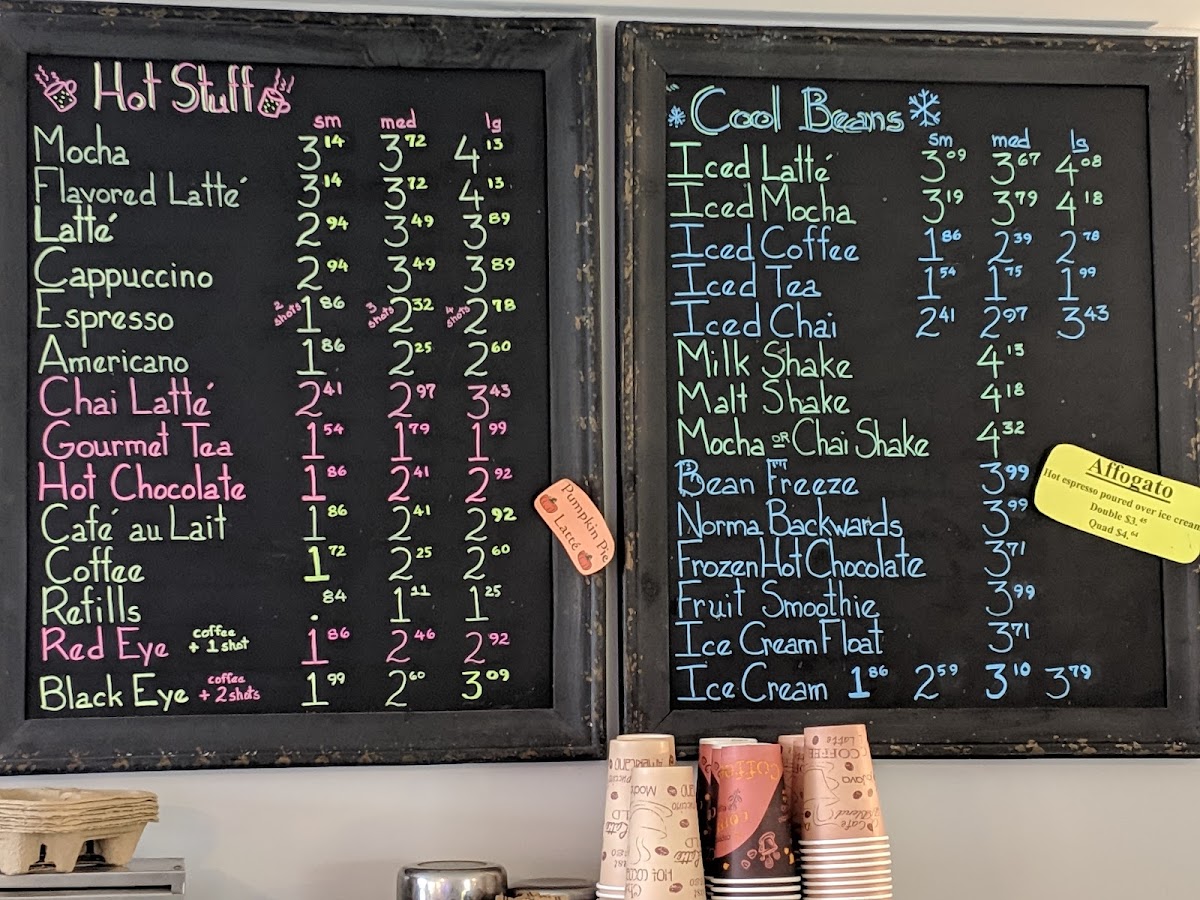 Hot Stuff
sm med lg
Mocha 3 14 3 72 4 13
Flavored Latté 3 14 3 72 4 13
Latté 2 94 3 49 3 89
Cappuccino 2 94 3 49 3 89
Espresso 2 shots 1 86 3 shots 2 32 4 shots 2 78
Americano 1 86 2 25 2 60
Chai Latté 2 41 2 97 3 43
Gourmet Tea 1 54 1 79 1 99
Hot Chocolate 1 86 2 41 2 92
Café au Lait 1 86 2 41 2 92
Coffee 1 72 2 25 2 60
Refills . 84 1 11 1 25
Red Eye coffee + 1 shot 1 86 2 46 2 92
Black Eye coffee + 2 shots 1 99 2 60 3 09
Pumpkin Pie
Latté
Cool Beans
sm med lg
Iced Latté 3 09 3 67 4 08
Iced Mocha 3 19 3 79 4 18
Iced Coffee 1 86 2 39 2 78
Iced Tea 1 54 1 75 1 99
Iced Chai 2 41 2 97 3 43
Milk Shake 4 13
Malt Shake 4 18
Mocha OR Chai Shake 4 32
Bean Freeze 3 99
Norma Backwards 3 99
Frozen Hot Chocolate 3 71
Fruit Smoothie 3 99
Ice Cream Float 3 71
Ice Cream 1 86 2 59 3 10 3 79
Affogato
Hot espresso poured over ice cream
Double $3.45
Quad $4.64
COFFEE
COFFEE